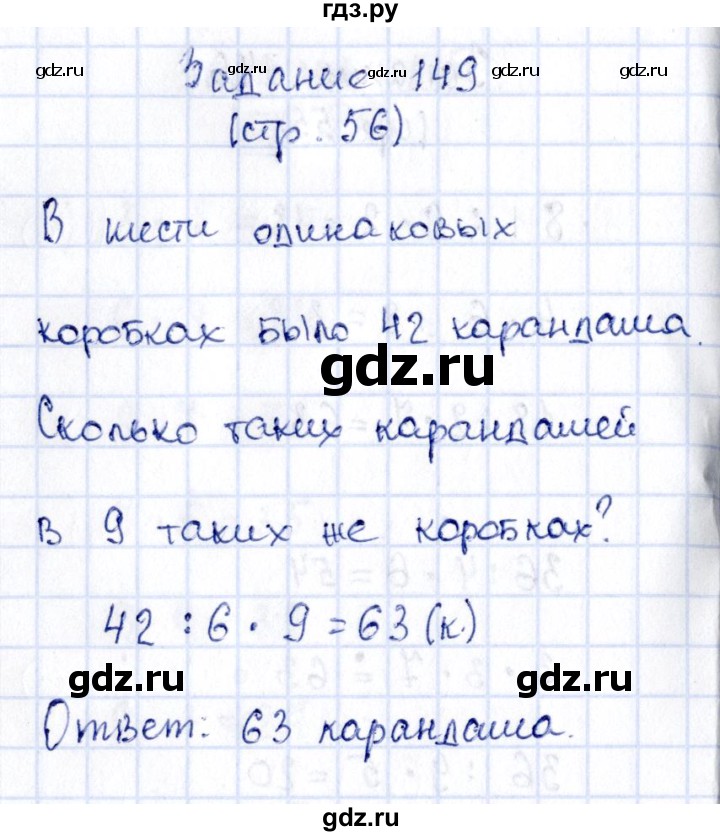 гдз.ру
gdz.ru gdz.ru gdz.ru gdz.ru
Задание 149
(стр. 56)
В шести одинаковых
коробках было 42 карандаша.
gdz.ru
Сколько таких карандашей
в 9 таких же коробках?
42 : 6 · 9 = 63 (к.)
gdz.ru gdz.ru
Ответ: 63 карандаша.
gdz.ru